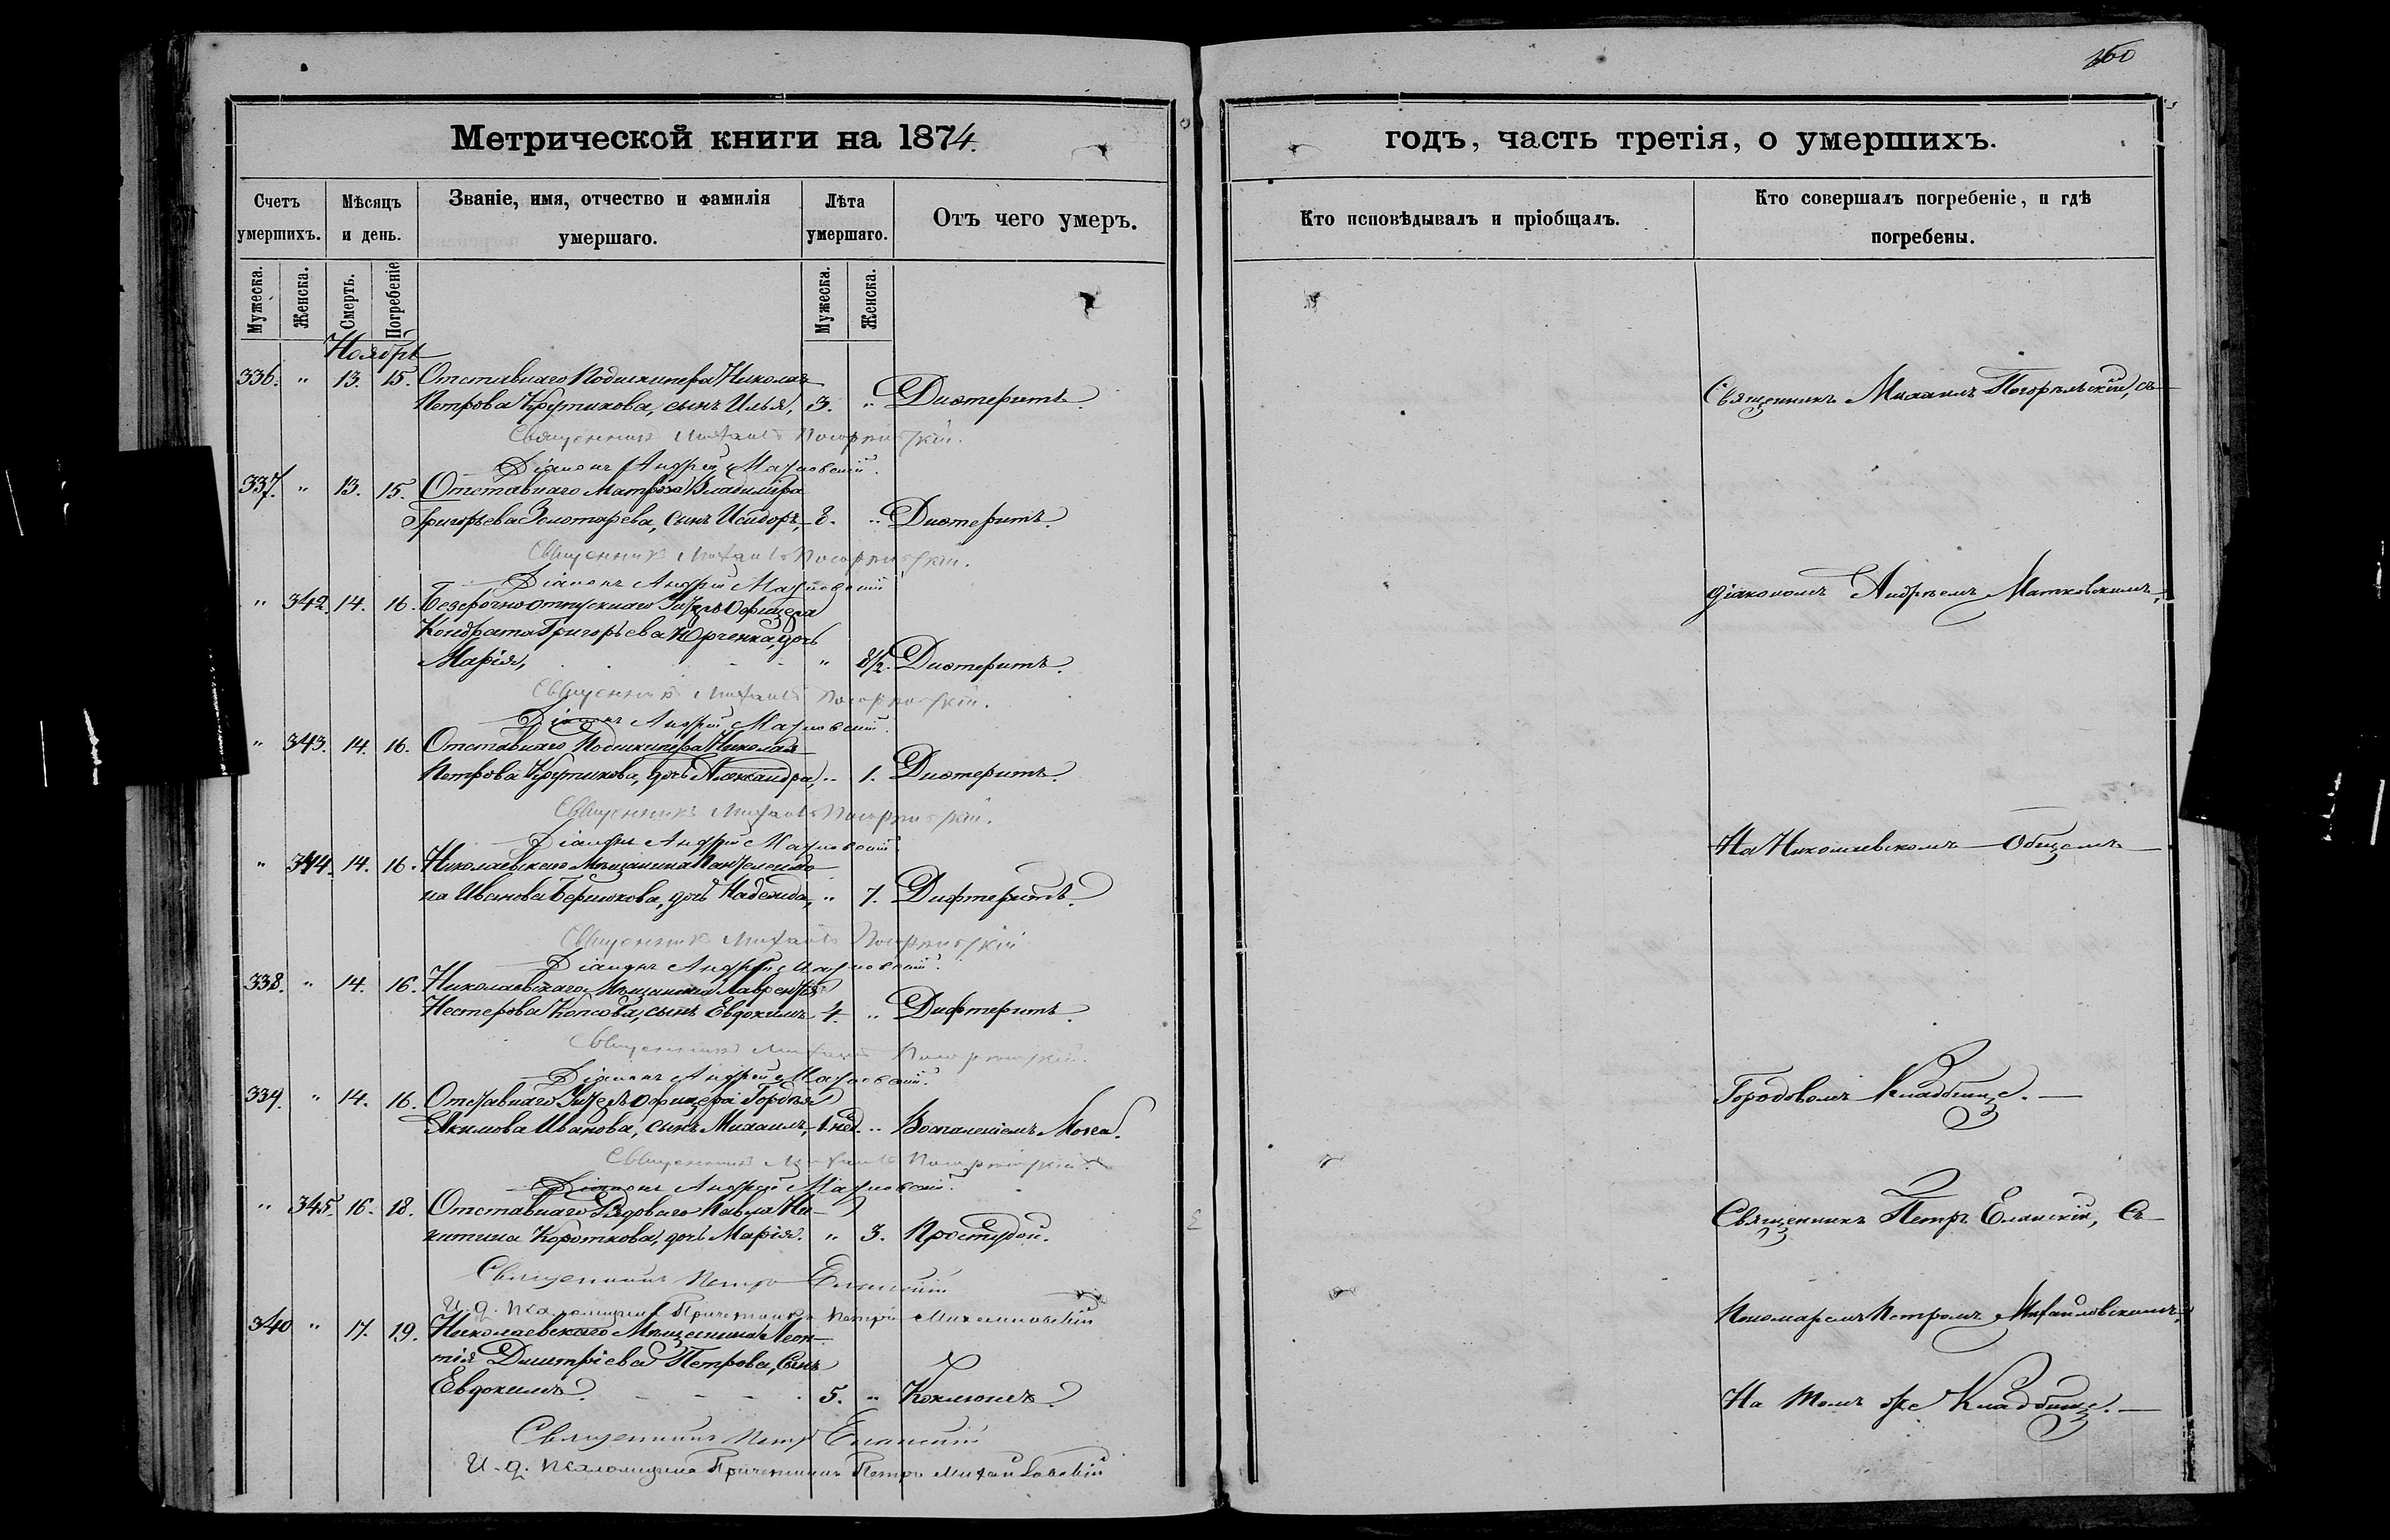 160
Метрической книги на 1874.
годъ, часть третія, о умершихъ.
Счетъ умершихъ.
Мѣсяцъ и день.
Званіе, имя, отчество и фамилія умершаго.
Лѣта умершаго.
Отъ чего умеръ.
Кто исповѣдывалъ и пріобщалъ.
Кто совершалъ погребеніе, и гдѣ погребены.
Мужеска.
Женска.
Смерть.
Погребеніе
Мужеска.
Женска.
Ноябрь
336. " 13. 15. Отставнаго Подшкипера Николая
Петрова Крутикова, сынъ Илья, 3. " Диѳтеритъ.
Священникъ Михаилъ Погорѣльскій.
Діаконъ Андрей Матковскій.
337. " 13. 15. Отставнаго Матроса Владиміра
Григорьева Золотарева, сынъ Исидоръ, 8. " Диѳтеритъ.
Священникъ Михаилъ Погорѣльскій.
Діаконъ Андрей Матковскій
" 342. 14. 16. Безсрочно-отпускнаго Унтеръ Офицера
Кондрата Григорьева Юрченка, дочь
Марія, " 8½. Диѳтеритъ.
Священникъ Михаилъ Погорѣльскій.
Діаконъ Андрей Матковскій.
" 343. 14. 16. Отставнаго Подшкипера Николая
Петрова Крутикова, дочь Александра, " 1. Диѳтеритъ.
Священникъ Михаилъ Погорѣльскій.
Діаконъ Андрей Матковскій.
" 344. 14. 16. Николаевскаго Мѣщанина Пантелеимо-
на Иванова Бирюкова, дочь Надежда, " 7. Дифтеритъ.
Священникъ Михаилъ Погорѣльскій
Діаконъ Андрей Матковскій.
338. " 14. 16. Николаевскаго Мѣщанина Лаврентія
Нестерова Копсова, сынъ Евдокимъ 4. " Дифтеритъ.
Священникъ Михаилъ Погорѣльскій.
Діаконъ Андрей Матковскій.
339. " 14. 16. Отставнаго Унтеръ Офицера Гордѣя
Якимова Иванова, сынъ Михаилъ, 1 нед. " Воспаленіемъ Мозга.
Священникъ Михаилъ Погорѣльскій.
Діаконъ Андрей Матковскій.
" 345. 16. 18. Отставнаго Рядоваго Павла Ни-
китина Короткова, дочь Марія. " 3. Простудой.
Священникъ Петръ Еланскій
И. д. Псаломщика Причетникъ Петръ Михайловскій
340 " 17. 19. Николаевскаго Мѣщанина Леон-
тія Дмитріева Петрова, Сынъ
Евдокимъ. 5. " Коклюшъ.
Священникъ Петръ Еланскій
И. д. Псаломщика Причетникъ Петръ Михайловскій
Священникъ Михаилъ Погорѣльскій, съ
діакономъ Андреемъ Матковскимъ,
На Николаевскомъ Общемъ
Городовомъ Кладбищѣ.
Священникъ Петръ Еланскій, Съ
Пономаремъ Петромъ Михайловскимъ,
На томъ же Кладбищѣ.